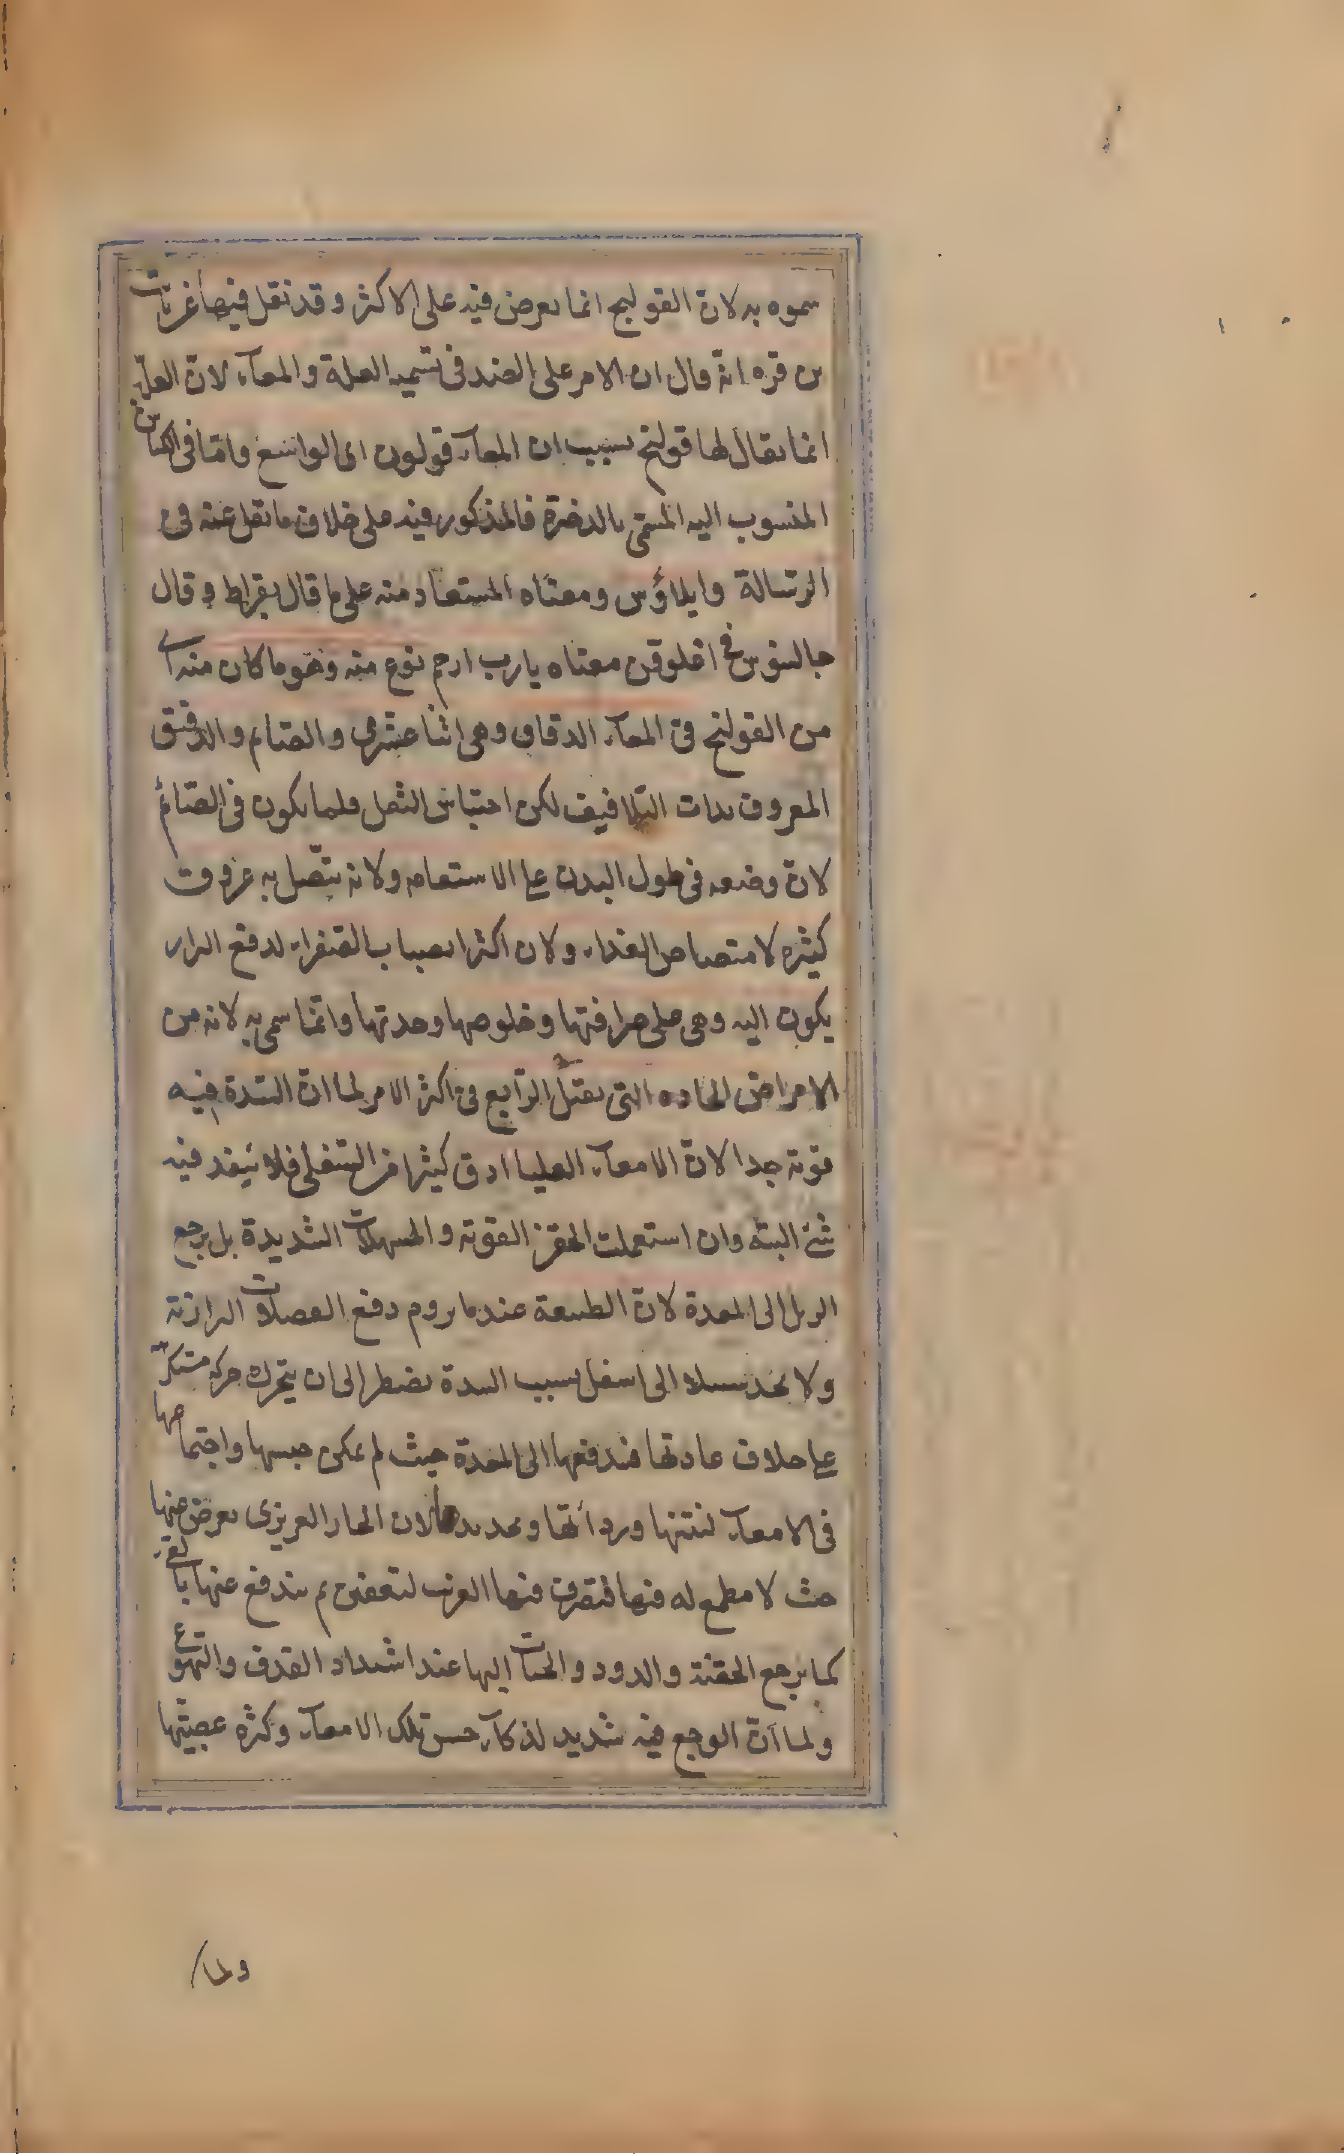 سموه به لان القولنج انما يعرض فيه على الاكثر وقد نقل فيها عن ثابت
بن قره انه قال ان الامر على الضد فى تسميه العلة والمعآء لان العلة
انما يقال لها قولنج بسبب ان المعآء قولون اى الواسع واما فى الكناش
المنسوب اليه المسمى بالذخيرة فالمذكور فيه على خلاف ما نقل عنه فى
الرسالة وايلاؤس ومعناه المستعاذ منه على ما قال بقراط وقال
جالينوس فى اغلوقن معناه يارب ارحم نوع منه وهو ما كان منه اى
من القولنج فى المعآء الدقاق وهى اثنا عشرى والصايم والدقيق
المعروف بذات التلافيف لكن احتباس الثفل قلما يكون فى الصائم
لان وضعه فى طول البدن على الاستقامه ولانه يتصل به عروق
كثيره لامتصاص الغذاء ولان اكثر انصباب الصفراء لدفع البراز
يكون اليه وهى على حرافتها وخلوصها وحدتها وانما سمى به لانه من
الامراض الحاده التى يقتل الرابع فى اكثر الامر لما ان السدة فيه
قوية جدا لان الامعآء العليا ادق كثيرا من السفلى فلا ينفذ فيه
شئ البته وان استعملت الحقن القوية والمسهلات الشديدة بل يرجع
الزبل الى المعدة لان الطبيعة عندما يروم دفع الفضلات البرازية
ولا يجد سبيلا الى اسفل بسبب السدة يضطر الى ان يتحرك حركه منكرة
على خلاف عادتها فيدفعها الى المعدة حيث لم يمكن حبسها واجتماعها
فى الامعآء لنتنها وردائتها لان الحار الغريزى يعرض عنها
حيث لا مطمع له فيها فيتصرف فيها الغريب لتعفين ثم يندفع عنها بالقئ
كما يرجع الحقنة والدود والحيات اليها عند اشتداد القذف والتهوع
ولما ان الوجع فيه شديد لذكآء حس تلك الامعآء وكثره عصبيتها
ولما